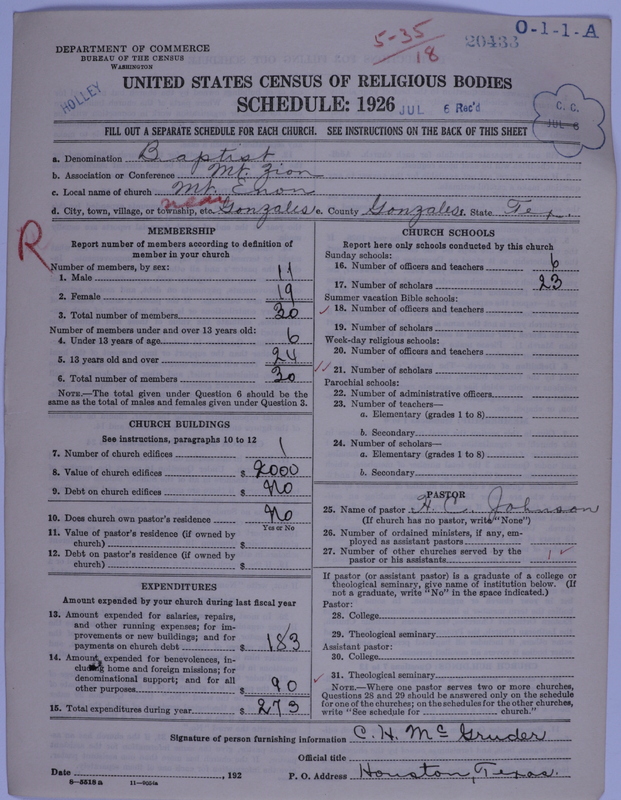 5-35
18
20433
O-1-1-A
DEPARTMENT OF COMMERCE
BUREAU OF THE CENSUS
WASHINGTON
HOLLEY
UNITED STATES CENSUS OF RELIGIOUS BODIES
SCHEDULE: 1926
JUL 6 Rec'd
C. C.
JUL 8
FILL OUT A SEPARATE SCHEDULE FOR EACH CHURCH. SEE INSTRUCTIONS ON THE BACK OF THIS SHEET
a. Denomination Baptist
b. Association or Conference Mt. Zion
c. Local name of church Mt. Enon
d. City, town, village, or township, etc. near Gonzales e. County Gonzales f. State Tex.
R
MEMBERSHIP
Report number of members according to definition of
member in your church
Number of members, by sex:
1. Male 11
2. Female 19
3. Total number of members 30
Number of members under and over 13 years old:
4. Under 13 years of age 6
5. 13 years old and over 24
6. Total number of members 30
NOTE.—The total given under Question 6 should be
same as the total of males and females given under Question 3.
CHURCH BUILDINGS
See instructions, paragraphs 10 to 12
7. Number of church edifices 1
8. Value of church edifices $ 2000
9. Debt on church edifices $ No
10. Does church own pastor's residence No
Yes or No
11. Value of pastor's residence (if owned by
church) $
12. Debt on pastor's residence (if owned by
church) $
EXPENDITURES
Amount expended by your church during last fiscal year
13. Amount expended for salaries, repairs,
and other running expenses; for im-
provements or new buildings; and for
payments on church debt $ 183
14. Amount expended for benevolences, in-
cluding home and foreign missions; for
denominational support; and for all
other purposes $ 90
15. Total expenditures during year $ 273
CHURCH SCHOOLS
Report here only schools conducted by this church
Sunday schools:
16. Number of officers and teachers 6
17. Number of scholars 23
Summer vacation Bible schools:
18. Number of officers and teachers
19. Number of scholars
Week-day religious schools:
20. Number of officers and teachers
21. Number of scholars
Parochial schools:
22. Number of administrative officers
23. Number of teachers—
a. Elementary (grades 1 to 8)
b. Secondary
24. Number of scholars—
a. Elementary (grades 1 to 8)
b. Secondary
PASTOR
25. Name of pastor H. C. Johnson
(If church has no pastor, write "None")
26. Number of ordained ministers, if any, em-
ployed as assistant pastors
27. Number of other churches served by the
pastor or his assistants 1
If pastor (or assistant pastor) is a graduate of a college or
theological seminary, give name of institution below. (If
not a graduate, write "No" in the space indicated.)
Pastor:
28. College
29. Theological seminary
Assistant pastor:
30. College
31. Theological seminary
NOTE.—Where one pastor serves two or more churches,
Questions 28 and 29 should be answered only on the schedule
for one of the churches; on the schedules for the other churches,
write "See schedule for church."
Signature of person furnishing information C. H. McGruder
Official title
Date , 192
P. O. Address Houston, Texas.
8—5518 a 11—9054a